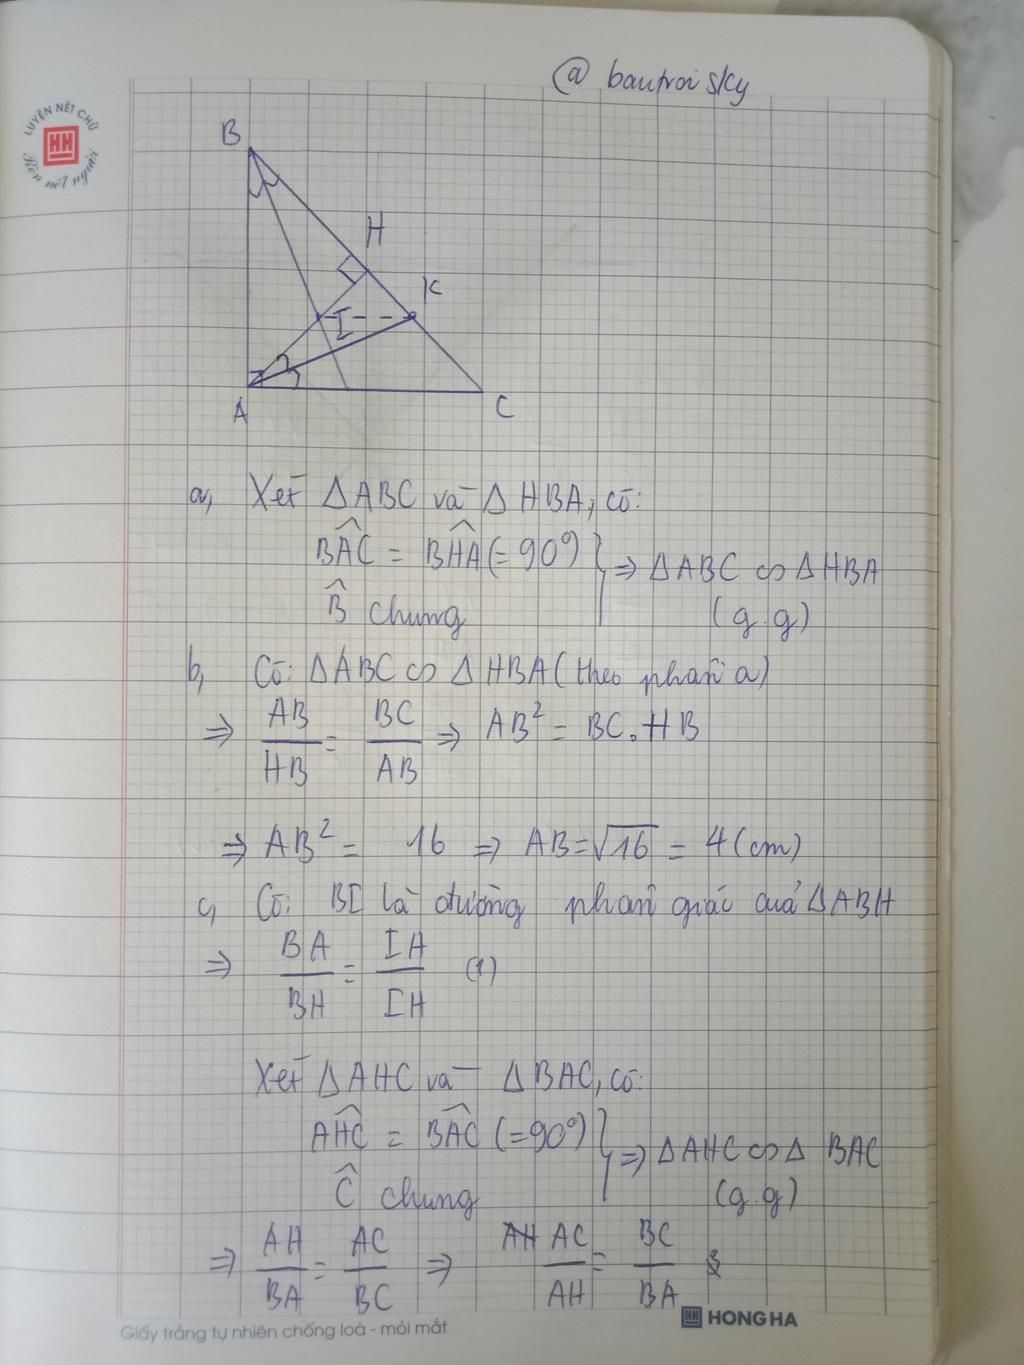 @ bautroi sky
LUYỆN NÉT CHỮ
HH
Rèn nết người
B
H
K
I
A
C
a, Xét ΔABC và ΔHBA, có:
BAC = BHA (= 90°)
B chung
⇒ ΔABC ∽ ΔHBA
(g.g)
b, Có: ΔABC ∽ ΔHBA (theo phần a)
⇒ AB/HB = BC/AB ⇒ AB² = BC.HB
⇒ AB² = 16 ⇒ AB = √16 = 4 (cm)
c, Có: BI là đường phân giác của ΔABH
⇒ BA/BH = IA/IH (1)
Xét ΔAHC và ΔBAC, có:
AHC = BAC (= 90°)
C chung
⇒ ΔAHC ∽ Δ BAC
(g.g)
⇒ AH/BA = AC/BC ⇒ AC/AH = BC/BA
Giấy trắng tự nhiên chống loá - mỏi mắt
HH HONG HA